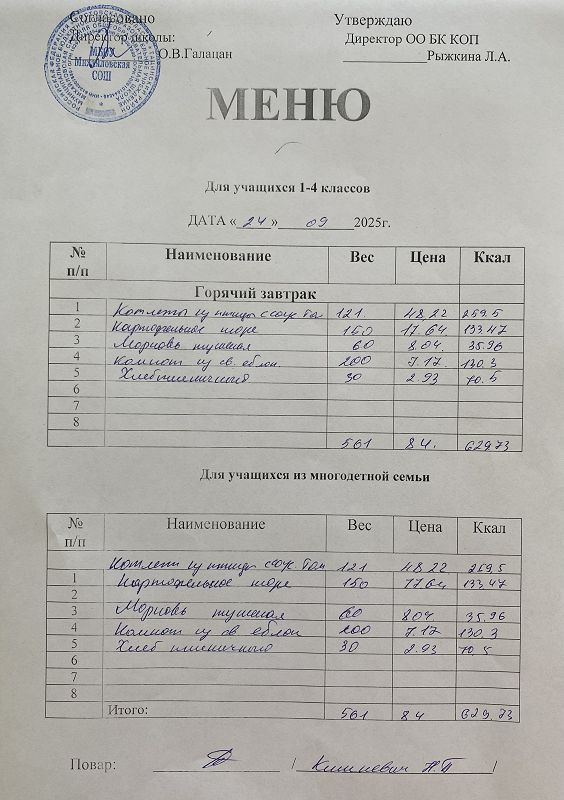 Согласовано Утверждаю
Директор школы: Директор ОО БК КОП
О.В.Галацан Рыжкина Л.А.
МБОУ
Михайловская
СОШ
МЕНЮ
Для учащихся 1-4 классов
ДАТА «24» 09 2025г.
№ п/п Наименование Вес Цена Ккал
Горячий завтрак
1 Котлеты из птицы с соус Том 121. 48.22 259.5
2 Картофельное пюре 150 17.64 133.47
3 Морковь тушеная 60 8.04 35.96
4 Компот из св. яблок 200 7.17. 130.3
5 Хлеб пшеничного 30 2.93 70.5
6
7
8
561 84. 629.73
Для учащихся из многодетной семьи
№ п/п Наименование Вес Цена Ккал
Котлеты из птицы соус Том 121 48.22 259.5
1 Картофельное пюре 150 17.64 133.47
2
3 Морковь тушеная 60 8.04 35.96
4 Компот из св яблок 200 7.17 130.3
5 Хлеб пшеничного 30 2.93 70.5
6
7
8
Итого: 561 84 629.73
Повар: / Н.П /